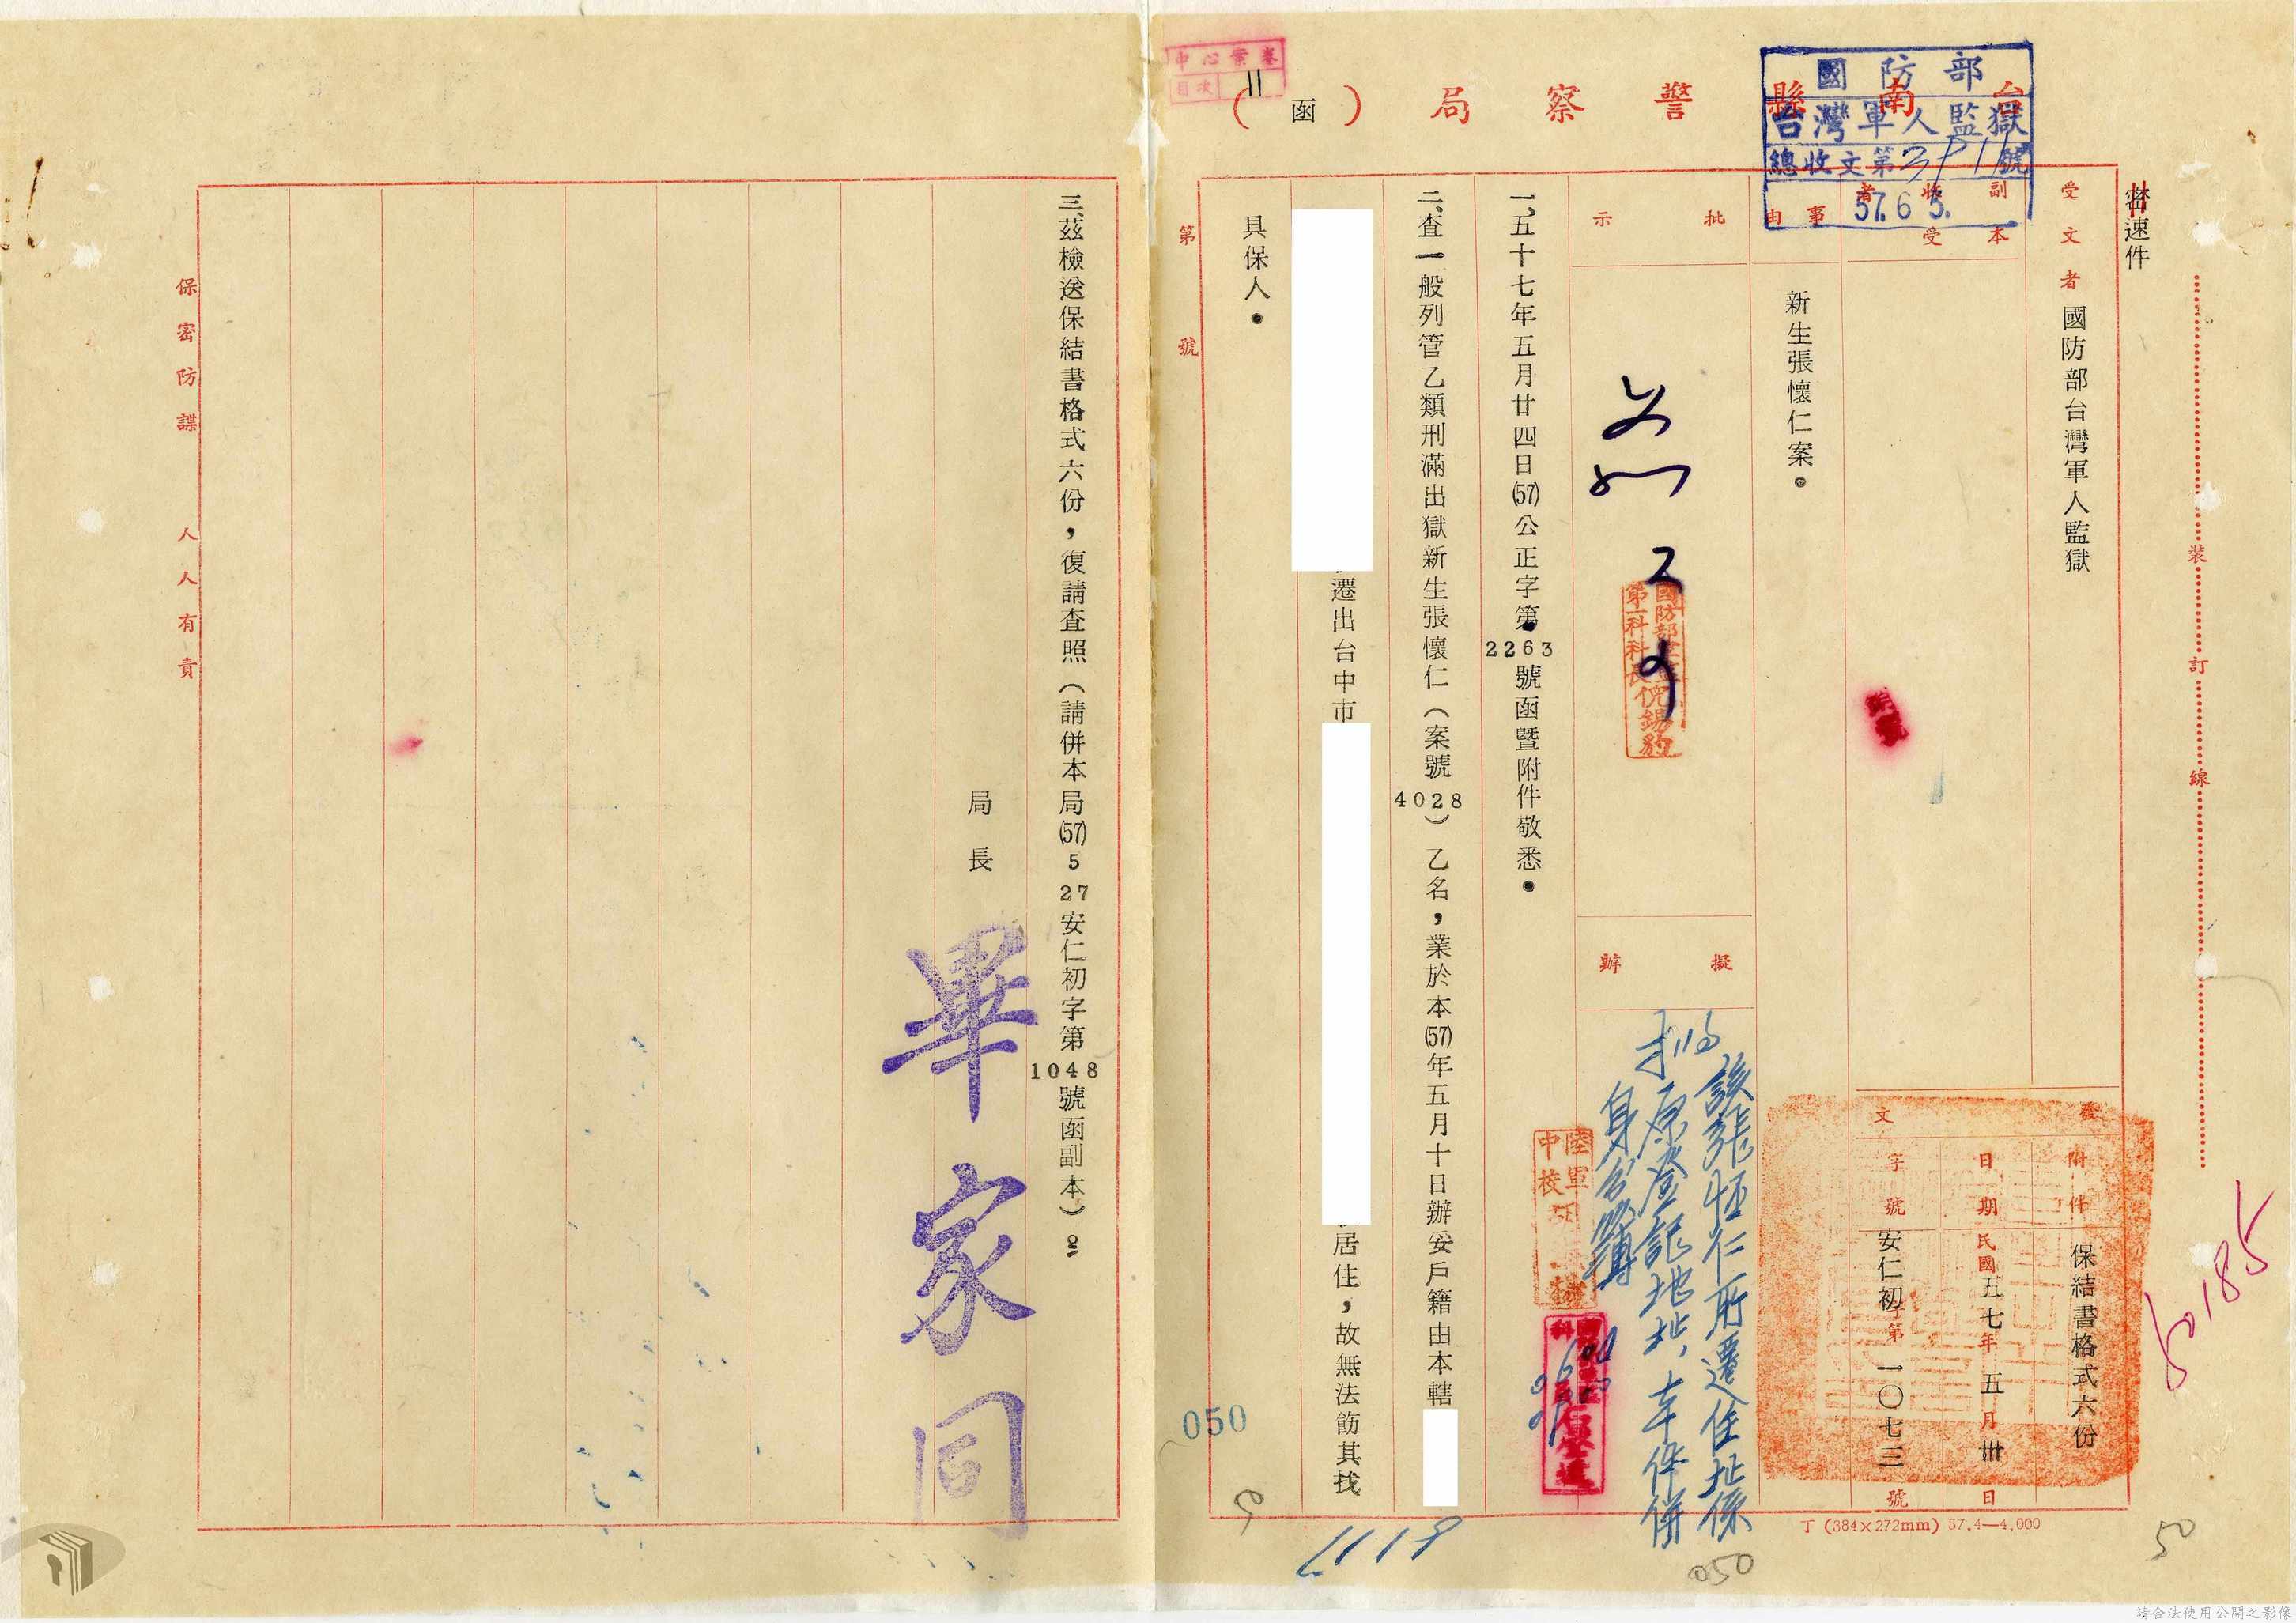 密速件
台南縣警察局（函）
國防部
台灣軍人監獄
總收文第3911號
57.6.5.
中心業卷
目次 11
受文者
國防部台灣軍人監獄
副本收受者
發文
附件
保結書格式六份
日期
民國五七年五月卅日
字號
安仁初字第一〇七三號
事由
新生張懷仁案。
批示
國防部
第一科科長倪錫豹
擬辦
該張懷仁所遷住址係
原登記地址，本件併
身份簿
陸軍中校
一、五十七年五月廿四日(57)公正字第2263號函暨附件敬悉。
二、查一般列管乙類刑滿出獄新生張懷仁（案號4028）乙名，業於本(57)年五月十日辦妥戶籍由本轄
遷出台中市
居住，故無法飭其找
具保人。
第 號
050
1119
050
50
50185
裝 訂 線
丁 (384×272mm) 57.4—4,000
三、茲檢送保結書格式六份，復請查照（請併本局(57)5 27安仁初字第1048號函副本）。
局長
畢家同
保密防諜 人人有責
請合法使用公開之影像